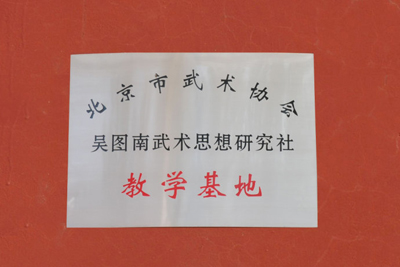 北京市武术协会
吴图南武术思想研究社
教学基地